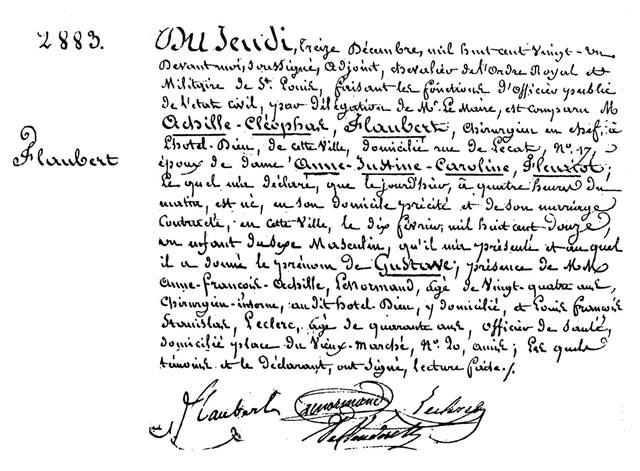 2883.
Du Jeudi, treize Décembre, mil huit cent vingt-un
Devant moi, soussigné, adjoint, chevalier de l'Ordre Royal et
Militaire de St. Louis, faisant les fonctions d'Officier public
de l'état civil, par délégation de Mr. Le Maire, est comparu M
Achille-Cléophas, Flaubert, chirurgien en chef, à
Flaubert
l'hotel-Dieu, de cette Ville, domicilié rue de Lecat, No. 17,
époux de dame Anne-Justine-Caroline, Fleuriot;
Le quel m'a déclaré, que le jourd'hier, à quatre heures du
matin, est né, en son domicile précité et de son mariage
Contracté, en cette Ville, le dix février, mil huit cent douze,
un enfant du sexe Masculin, qu'il m'a présenté et au quel
il a donné le prénom de Gustave; présence de MM
Anne-François-Achille, Lenormand, âgé de Vingt-quatre ans,
Chirurgien-interne, au dit hotel-Dieu, y domicilié, et Louis François
Stanislas, Leclerc, âgé de quarante ans, officier de santé,
domicilié place du Vieux-Marché, No. 20, amis; Les quels
témoins et le déclarant, ont signé, lecture faite./.
Flaubert Lenormand Leclerc